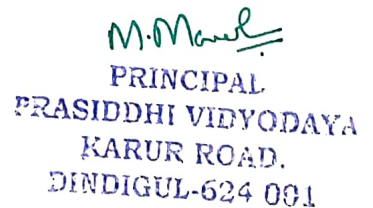 PRINCIPAL
PRASIDDHI VIDYODAYA
KARUR ROAD.
DINDIGUL-624 001